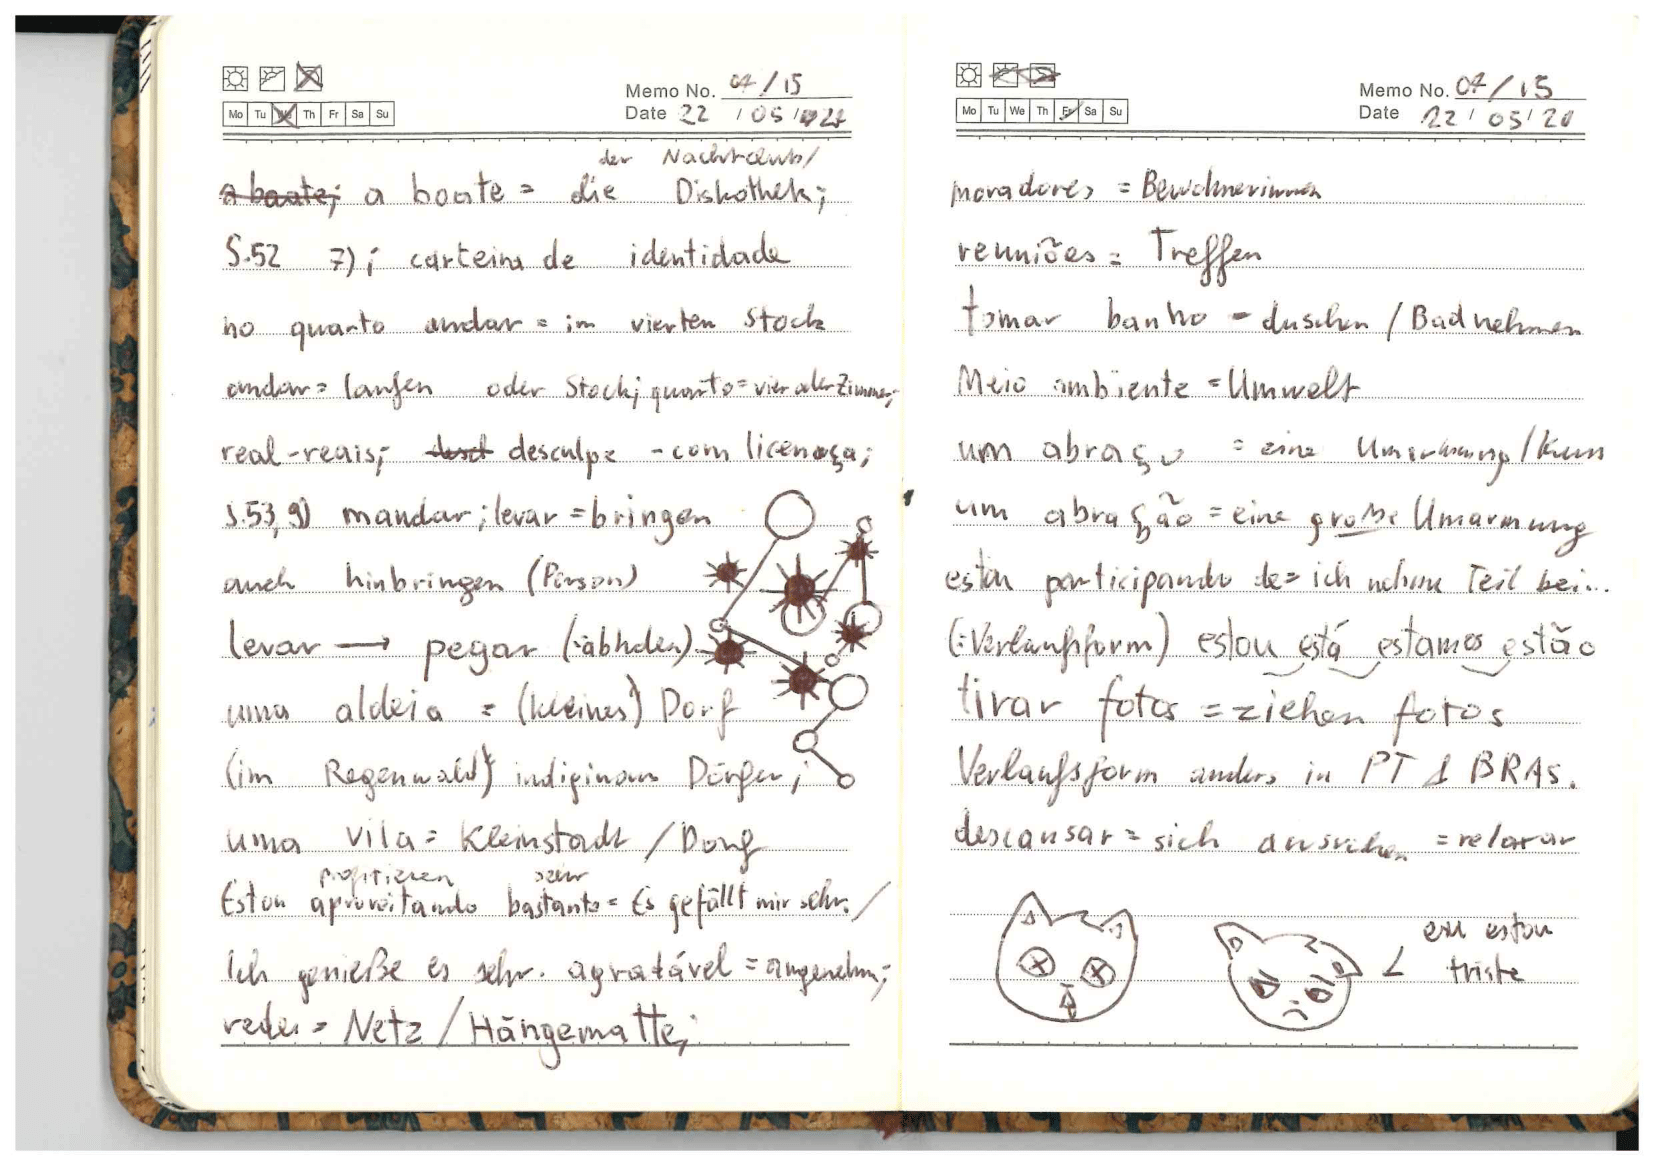 Memo No. 04/15
Mo Tu We Th Fr Sa Su
Date 22 / 05 /
der Nachtclub/
a boate; a boate = die Diskothek;
S.52 7); carteira de identidade
no quarto andar = im vierten Stock
andar = laufen oder Stock; quarto = vier oder Zimmer;
real-reais; desculpe - com licença;
S.53, 9) mandar; levar = bringen
auch hinbringen (Person)
levar → pegar (:abholen)
uma aldeia = (kleines) Dorf
(im Regenwald) Dörfer;
uma vila = Kleinstadt / Dorf
profitieren sehr
Estou aproveitando bastante = Es gefällt mir sehr. /
Ich genieße es sehr. agradável = angenehm;
rede = Netz / Hängematte;
Memo No. 04/15
Mo Tu We Th Fr Sa Su
Date 22 / 05 / 20
moradores = Bewohnerinnen
reuniões = Treffen
tomar banho - duschen / Bad nehmen
Meio ambiente = Umwelt
um abraço = eine Umarmung /
um abração = eine große Umarmung
estou participando de = ich nehme Teil bei...
(:Verlaufsform) estou está estamos estão
tirar fotos = ziehen fotos
Verlaufsform anders in PT & BRAS.
descansar = sich ausruhen = relaxar
eu estou
< triste